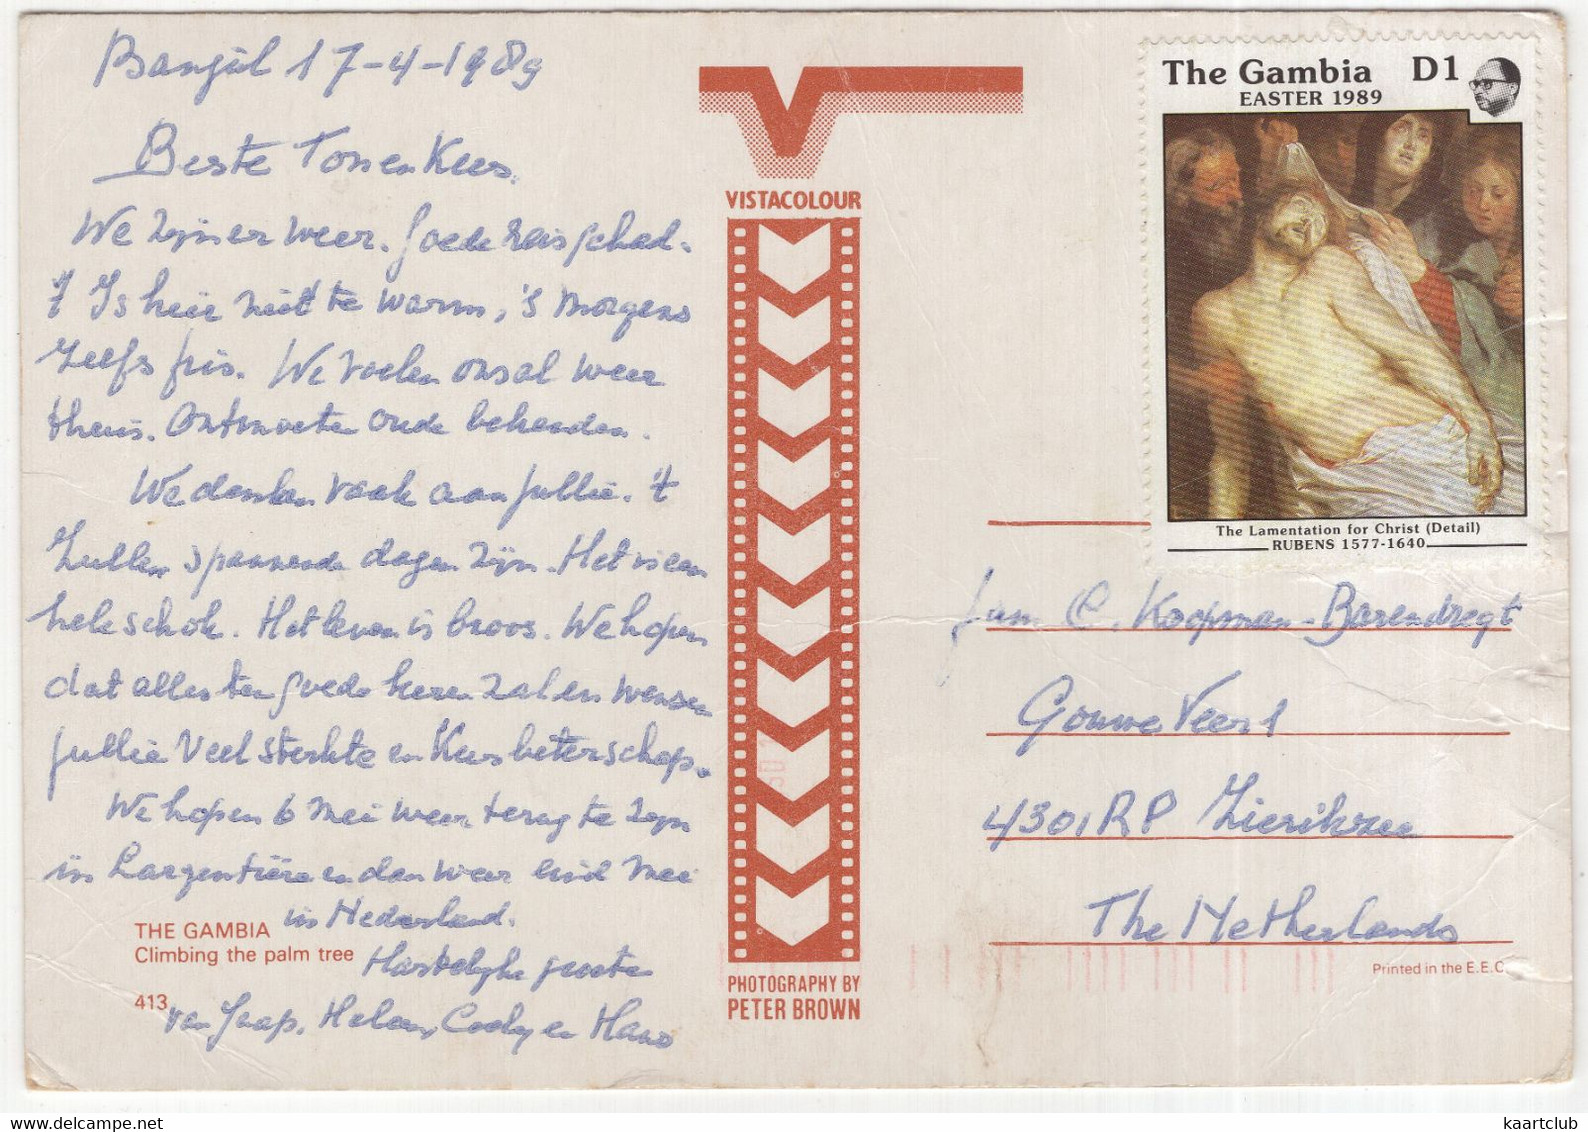 Banjul 17-4-1989
Beste Ton en Kees.
We zijn er weer. Goede reis gehad.
't Is hier niet te warm, 's morgens
zelfs fris. We voelen ons al weer
thuis. Ontmoeten oude bekenden.
We denken vaak aan jullie. 't
Zullen spannende dagen zijn. Het is een
hele schok. Het leven is broos. We hopen
dat alles ten goede keren zal en wensen
jullie veel sterkte en Kees beterschap.
We hopen 6 mei weer terug te zijn
in Largentière en dan weer eind mei
in Nederland.
Hartelijke groeten
van Jaap, Helen, Cocky en Hans
THE GAMBIA
Climbing the palm tree
413
VISTACOLOUR
PHOTOGRAPHY BY
PETER BROWN
The Gambia D1
EASTER 1989
The Lamentation for Christ (Detail)
RUBENS 1577-1640
fam C. Koopman-Barendregt
Gouwe Veer 1
4301 RP Zierikzee
The Netherlands
Printed in the E.E.C.
www.delcampe.net
kaartclub